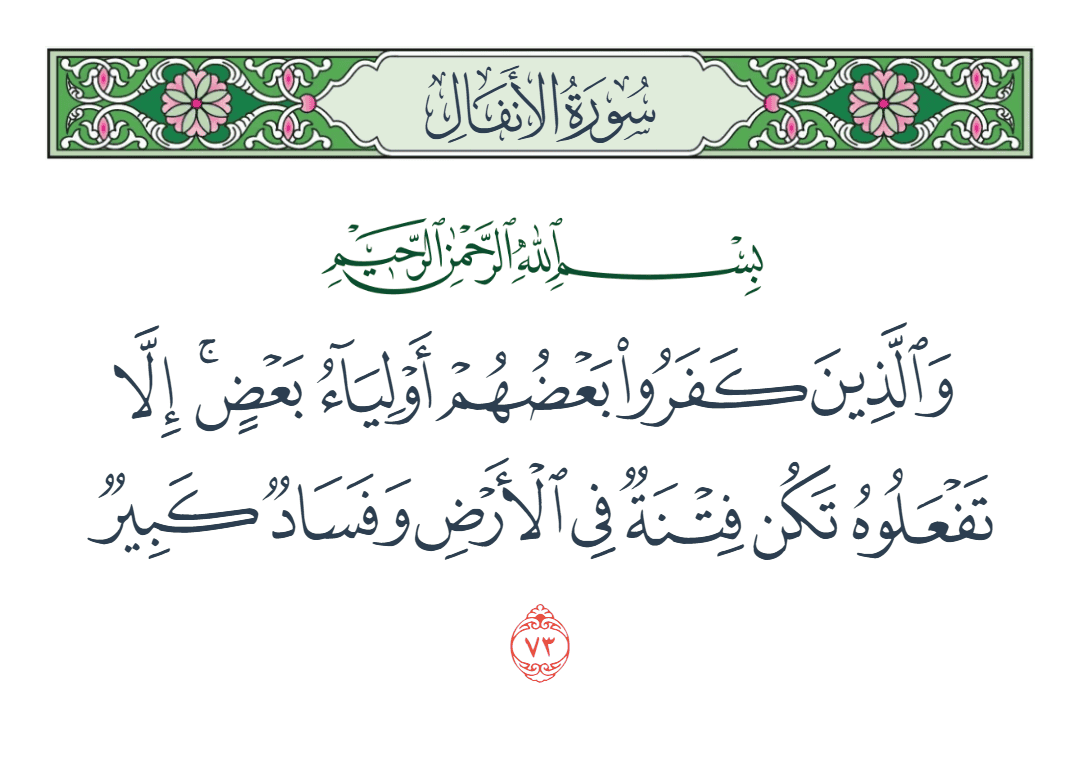 سُورَةُ الأَنفَالِ
بِسْمِ ٱللَّهِ ٱلرَّحْمَٰنِ ٱلرَّحِيمِ
وَٱلَّذِينَ كَفَرُوا۟ بَعْضُهُمْ أَوْلِيَآءُ بَعْضٍ ۚ إِلَّا
تَفْعَلُوهُ تَكُن فِتْنَةٌ فِى ٱلْأَرْضِ وَفَسَادٌ كَبِيرٌ
٧٣